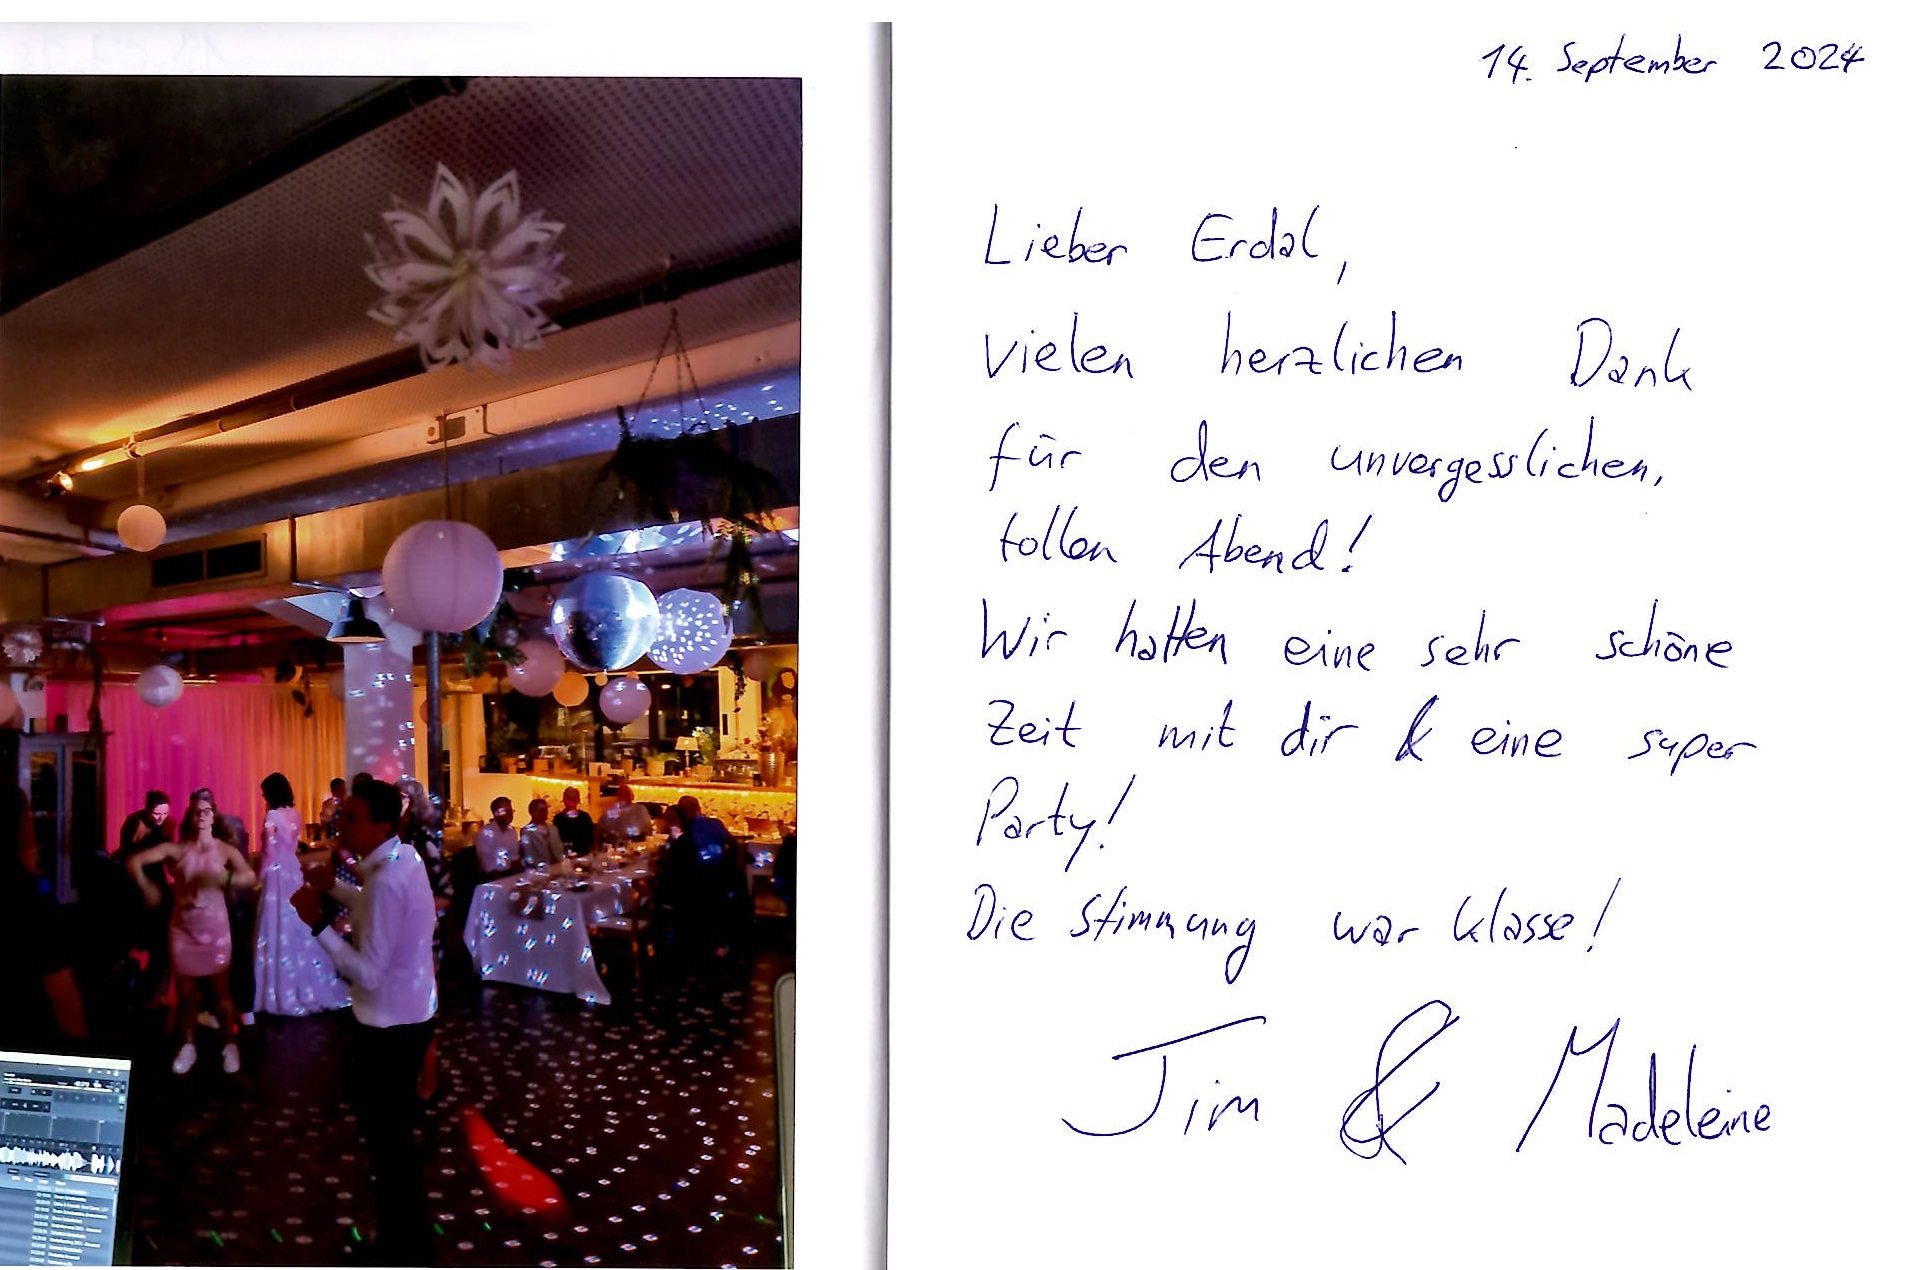 14. September 2024
Lieber Erdal,
vielen herzlichen Dank
für den unvergesslichen,
tollen Abend!
Wir hatten eine sehr schöne
Zeit mit dir & eine super
Party!
Die Stimmung war klasse!
Jim & Madeleine